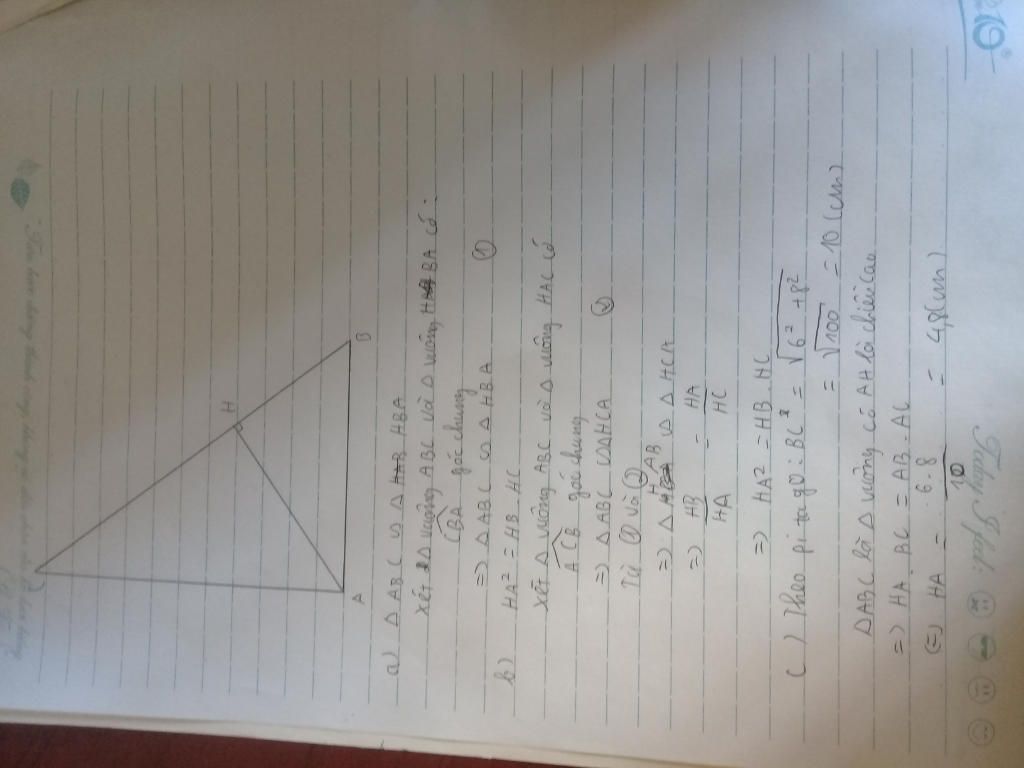 C
H
A
B
a) Δ ABC ∽ Δ HBA
Xét Δ vuông ABC và Δ vuông HBA có:
CBA góc chung
=> Δ ABC ∽ Δ HBA ①
b) HA² = HB . HC
Xét Δ vuông ABC và Δ vuông HAC có
ACB góc chung
=> Δ ABC ∽ Δ HCA ②
Từ ① và ②
=> Δ HAB ∽ Δ HCA
=> HB/HA = HA/HC
=> HA² = HB . HC
c) Theo pi ta gô : BC = √6² + 8²
= √100 = 10 (cm)
Δ ABC là Δ vuông có AH là chiều cao
=> HA . BC = AB . AC
(=) HA = 6.8/10 = 4,8 (cm)
Today I feel: